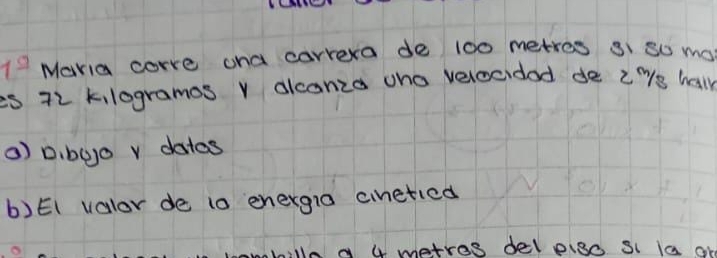 1º Maria corre una carrera de 100 metros si su
72 Kilogramos y alcanza una velocidad de 2 m/s
a) Dibujo y datos
b) El valor de la energia cinetica
a 4 metros del piso si la